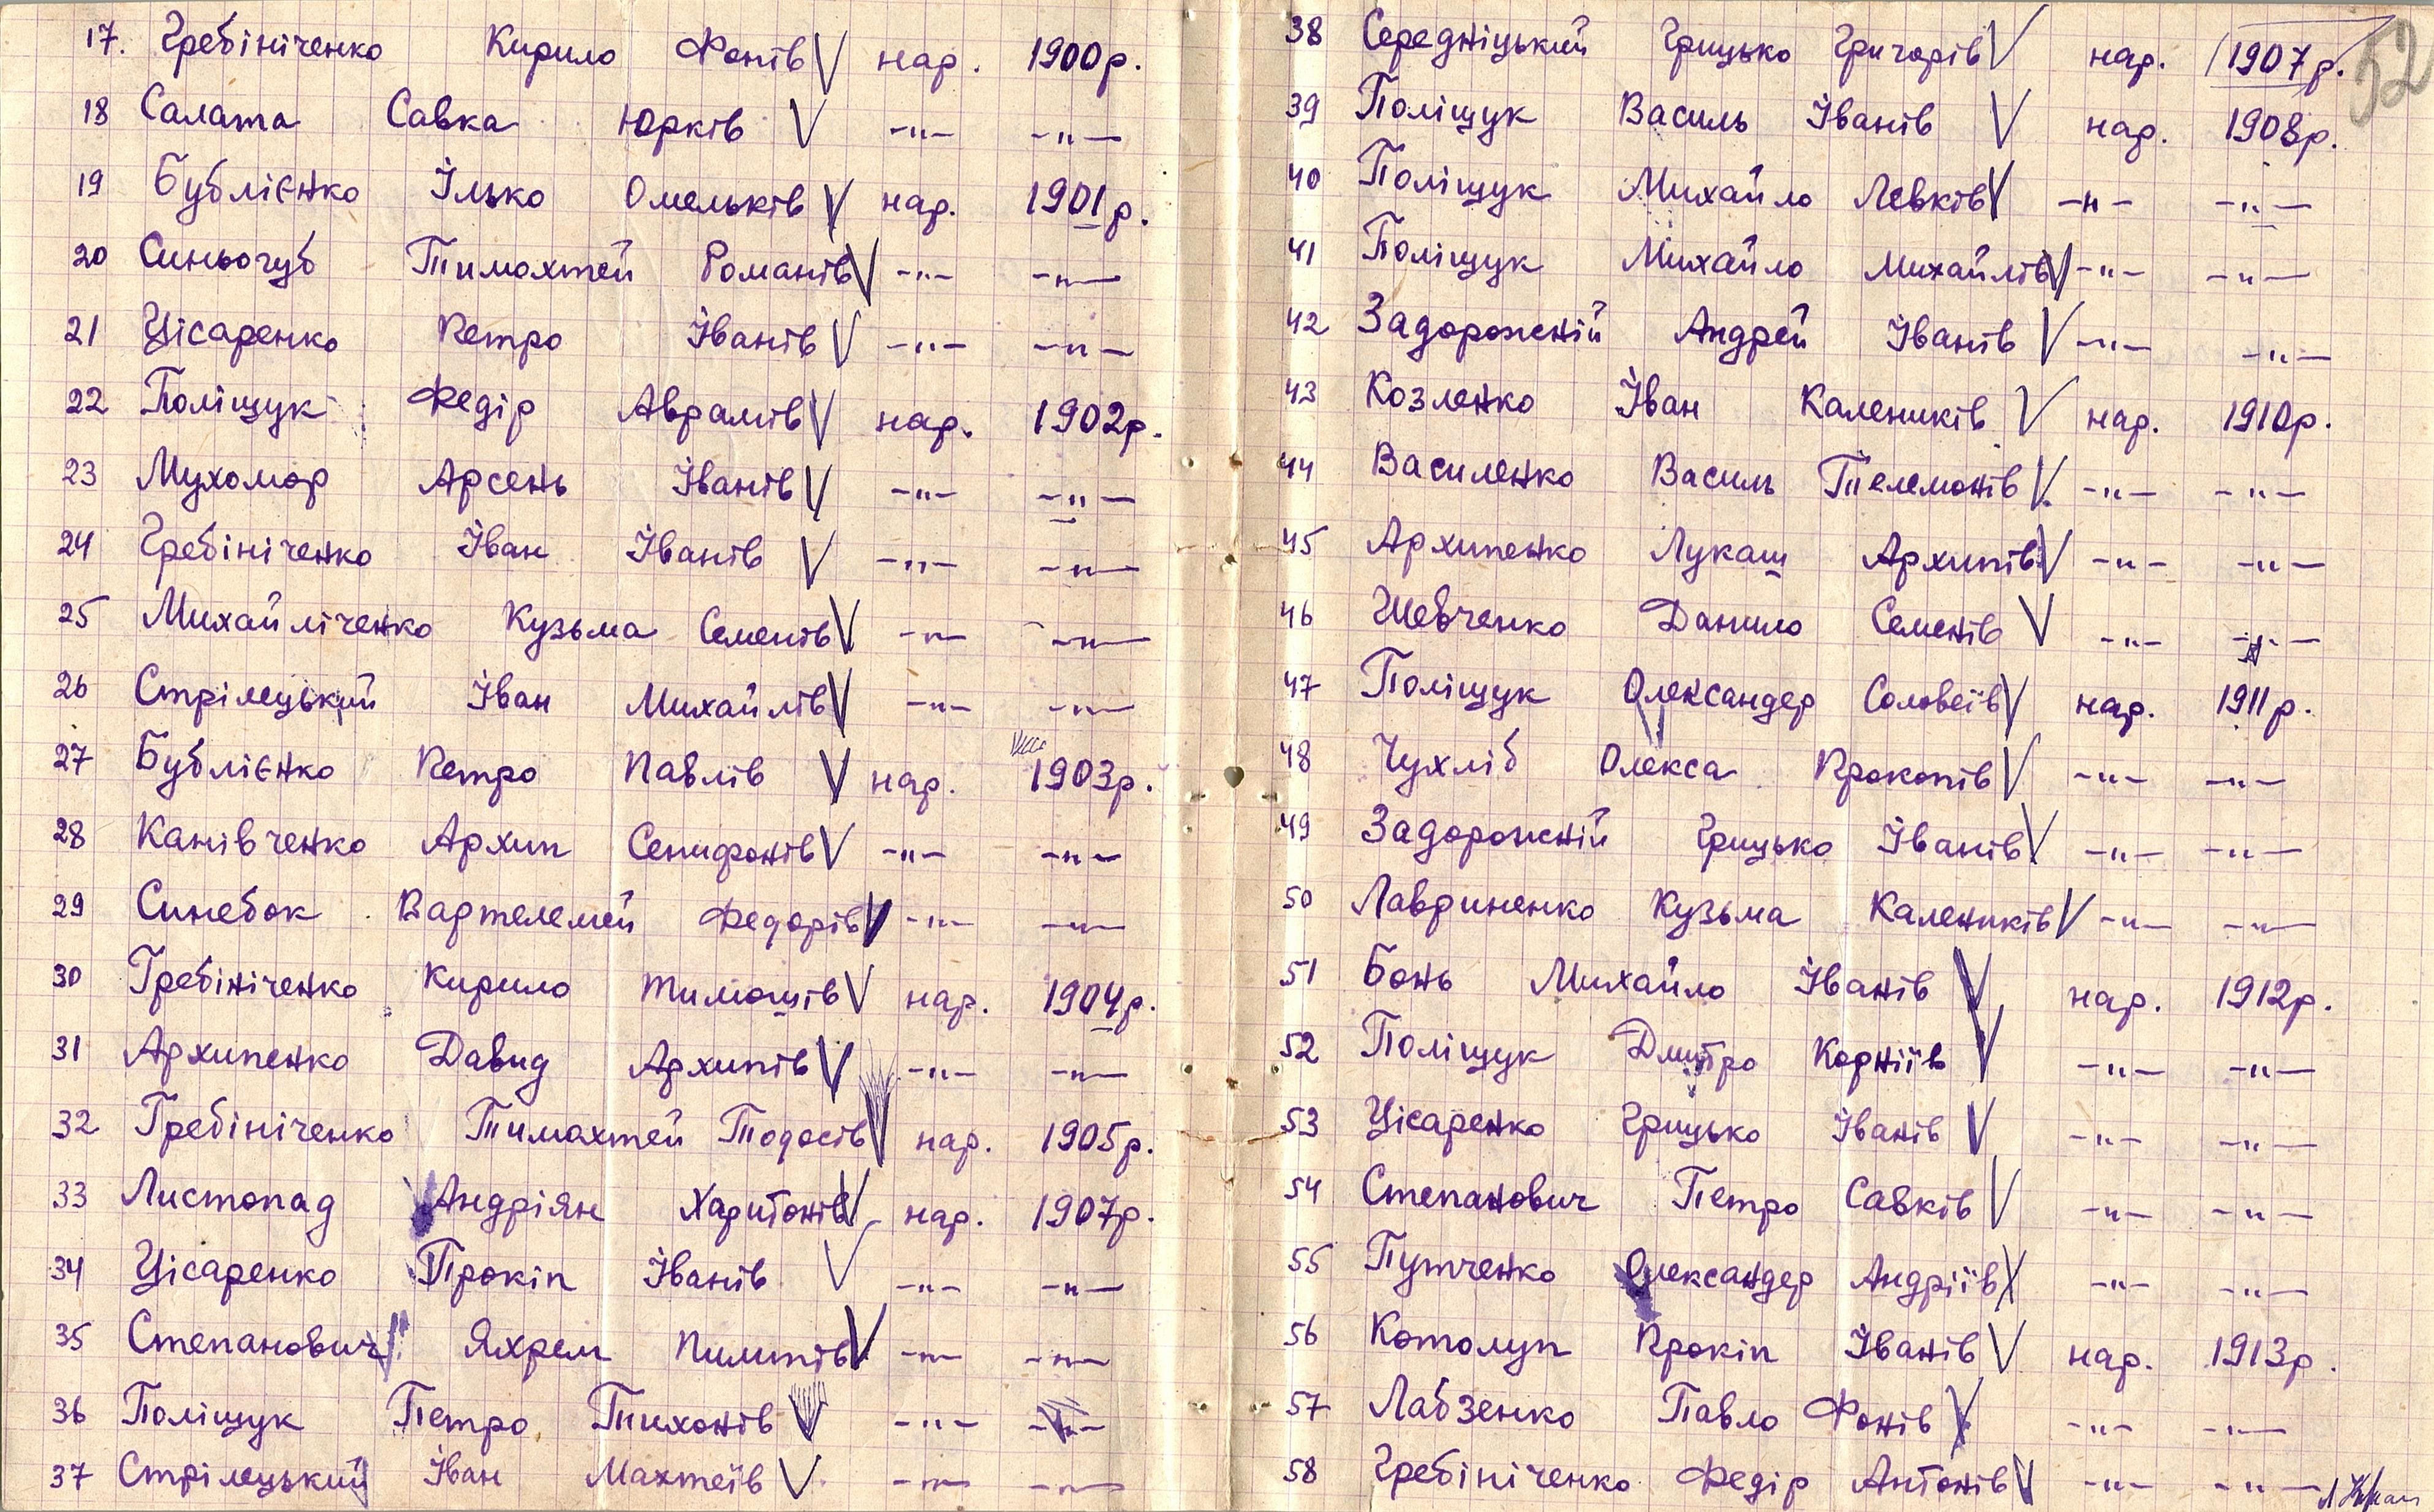 52
17. Гребініченко Кирило Фонів V нар. 1900р.
18 Салата Савка Юрків V -"- -"-
19 Бублієнко Ілько Омельків V нар. 1901р.
20 Синьогуб Тимохтей Романів V -"- -"-
21 Цісаренко Петро Іванів V -"- -"-
22 Поліщук Федір Аврамів V нар. 1902р.
23 Мухомор Арсень Іванів V -"- -"-
24 Гребініченко Іван Іванів V -"- -"-
25 Михайліченко Кузьма Семенів V -"- -"-
26 Стрілецький Іван Михайлів V -"- -"-
27 Бублієнко Петро Павлів V нар. 1903р.
28 Канівченко Архип Сенифонів V -"- -"-
29 Синебок Вартелемей Федорів V -"- -"-
30 Гребініченко Кирило Тимошів V нар. 1904р.
31 Архипенко Давид Архипів V -"- -"-
32 Гребініченко Тимохтей Тодосів V нар. 1905р.
33 Листопад Андріян Харитонів V нар. 1907р.
34 Цісаренко Прокіп Іванів V -"- -"-
35 Степанович Яхрем Пилипів V -"- -"-
36 Поліщук Петро Тихонів V -"- -"-
37 Стрілецький Іван Махтеїв V -"- -"-
38 Середніцький Грицько Григорів V нар. 1907р.
39 Поліщук Василь Іванів V нар. 1908р.
40 Поліщук Михайло Левків V -"- -"-
41 Поліщук Михайло Михайлів V -"- -"-
42 Задорожній Андрей Іванів V -"- -"-
43 Козленко Іван Калеників V нар. 1910р.
44 Василенко Василь Телемонів V -"- -"-
45 Архипенко Лукаш Архипів V -"- -"-
46 Шевченко Данило Семенів V -"- -"-
47 Поліщук Олександер Соловеїв V нар. 1911р.
48 Чухліб Олекса Прокопів V -"- -"-
49 Задорожній Грицько Іванів V -"- -"-
50 Лавриненко Кузьма Калеників V -"- -"-
51 Бонь Михайло Іванів V нар. 1912р.
52 Поліщук Дмитро Корніїв V -"- -"-
53 Цісаренко Грицько Іванів V -"- -"-
54 Степанович Петро Савків V -"- -"-
55 Путченко Олександер Андріїв V -"- -"-
56 Котолуп Прокіп Іванів V нар. 1913р.
57 Лабзенко Павло Фонів V -"- -"-
58 Гребініченко Федір Антонів V -"- -"-